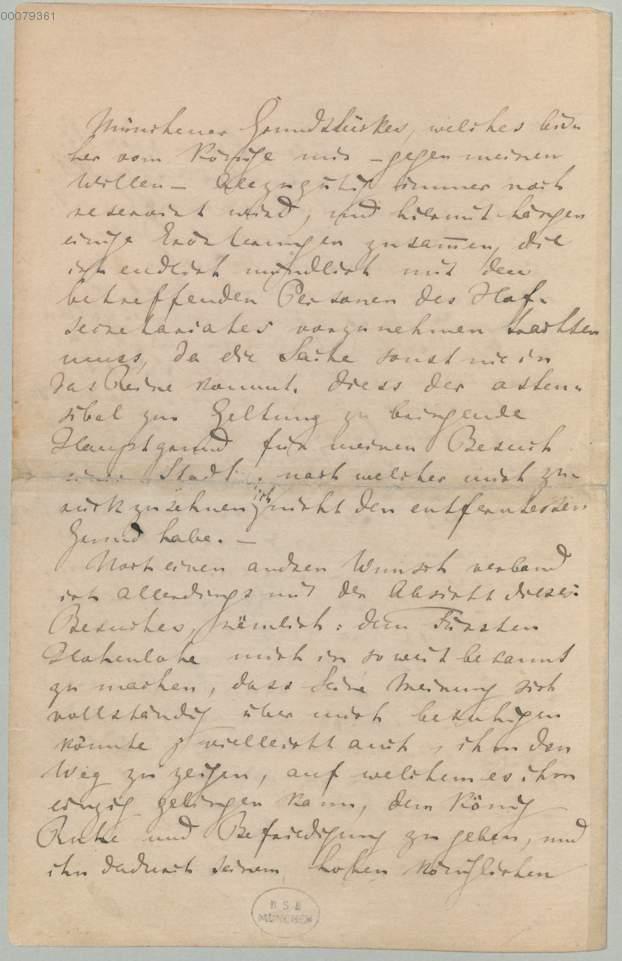 00079361
Münchener Grundstückes, welches bis-
her vom Könige mir – gegen meinen
Willen – allzugütig immer noch
reservirt wird, und hiermit hängen
einige Erörterungen zusammen, die
ich endlich mündlich mit den
betreffenden Personen des Hof-
secretariates vorzunehmen trachten
muss, da die Sache sonst nie in
das Reine kommt. Diess der osten-
sibel zur Geltung zu bringende
Hauptgrund für meinen Besuch
einer Stadt, nach welcher mich zu-
rück zu sehnen ich nicht den entferntesten
Grund habe. –
Noch einen andren Wunsch verband
ich allerdings mit der Absicht dieses
Besuches, nämlich: dem Fürsten
Hohenlohe mich in so weit bekannt
zu machen, dass Seine Meinung sich
vollständig über mich beruhigen
könnte; vielleicht auch, ihm den
Weg zu zeigen, auf welchem es ihm
einzig gelingen kann, dem König
Ruhe und Befriedigung zu geben, und
ihn dadurch seinem hohen königlichen
B S B
MÜNCHEN